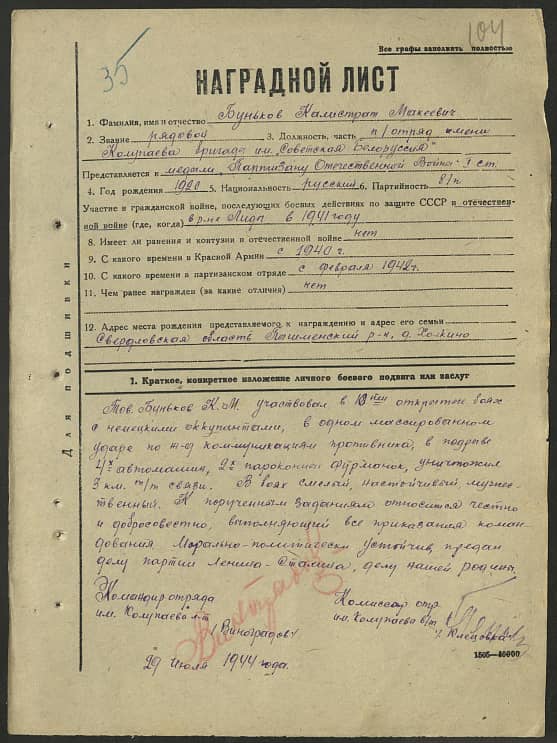 104
Все графы заполнять полностью
35
НАГРАДНОЙ ЛИСТ
1. Фамилия, имя и отчество Буньков Калистрат Макеевич
2. Звание рядовой 3. Должность, часть п/отряд имени
Колупаева бригада им. "Советская Белоруссия"
Представляется к медали "Партизану Отечественной Войны" I ст.
4. Год рождения 1920 5. Национальность русский 6. Партийность б/п
Участие в гражданской войне, последующих боевых действиях по защите СССР и отечествен-
ной войне (где, когда) в р-не Лида в 1941 году
8. Имеет ли ранения и контузии в отечественной войне нет
9. С какого времени в Красной Армии с 1940 г.
10. С какого времени в партизанском отряде с февраля 1942 г.
11. Чем ранее награжден (за какие отличия) нет
12. Адрес места рождения представляемого к награждению и адрес его семьи
Свердловская область р-н, д. Холкино
Для подшивки
1. Краткое, конкретное изложение личного боевого подвига или заслуг
Тов. Буньков К.М. участвовал в 10 открытых боях
с немецкими оккупантами, в одном массированном
ударе по ж-д коммуникациям противника, в подрыве
4х автомашин, 2х пароконных фурманок, уничтожил
3 км. т/т связи. В боях смелый, настойчивый, муже-
ственный. К порученным заданиям относится честно
и добросовестно, выполняющий все приказания коман-
дования. Морально-политически устойчив, предан
делу партии Ленина-Сталина, делу нашей родины.
Командир отряда
им. Колупаева л-т
/Виноградов/
Комиссар отр.
им. Колупаева
29 июля 1944 года.